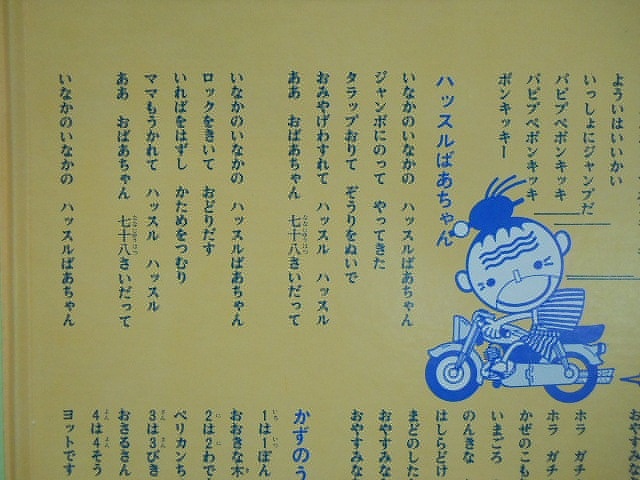 よういはいいかい
いっしょにジャンプだ
パピプペポンキッキ
パピプペポンキッキ
ポンキッキー
ハッスルばあちゃん
いなかのいなかの ハッスルばあちゃん
ジャンボにのって やってきた
タラップおりて ぞうりをぬいで
おみやげわすれて ハッスル ハッスル
ああ おばあちゃん 七十八さいだって
いなかのいなかの ハッスルばあちゃん
ロックをきいて おどりだす
いればをはずし かためをつむり
ママもうかれて ハッスル ハッスル
ああ おばあちゃん 七十八さいだって
いなかのいなかの ハッスルばあちゃん
おやすみな
ホラ ガチ
ホラ ガチ
かぜのこも
いまごろ
のんきな
はしらどけ
まどのした
おやすみな
おやすみな
かずのう
1は1ぽん
おおきな木
2は2わで
ペリカンち
3は3びき
おさるさん
4は4そう
ヨットです